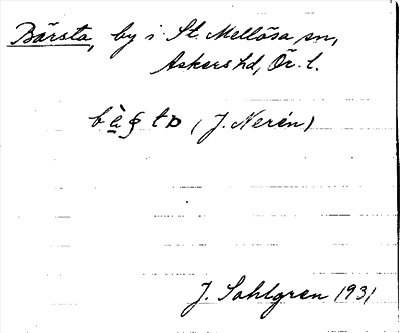 Bärsta, by i St. Mellösa sn,
Askers hd, Ör. l.
(J. Nerén)
J. Sahlgren 1931